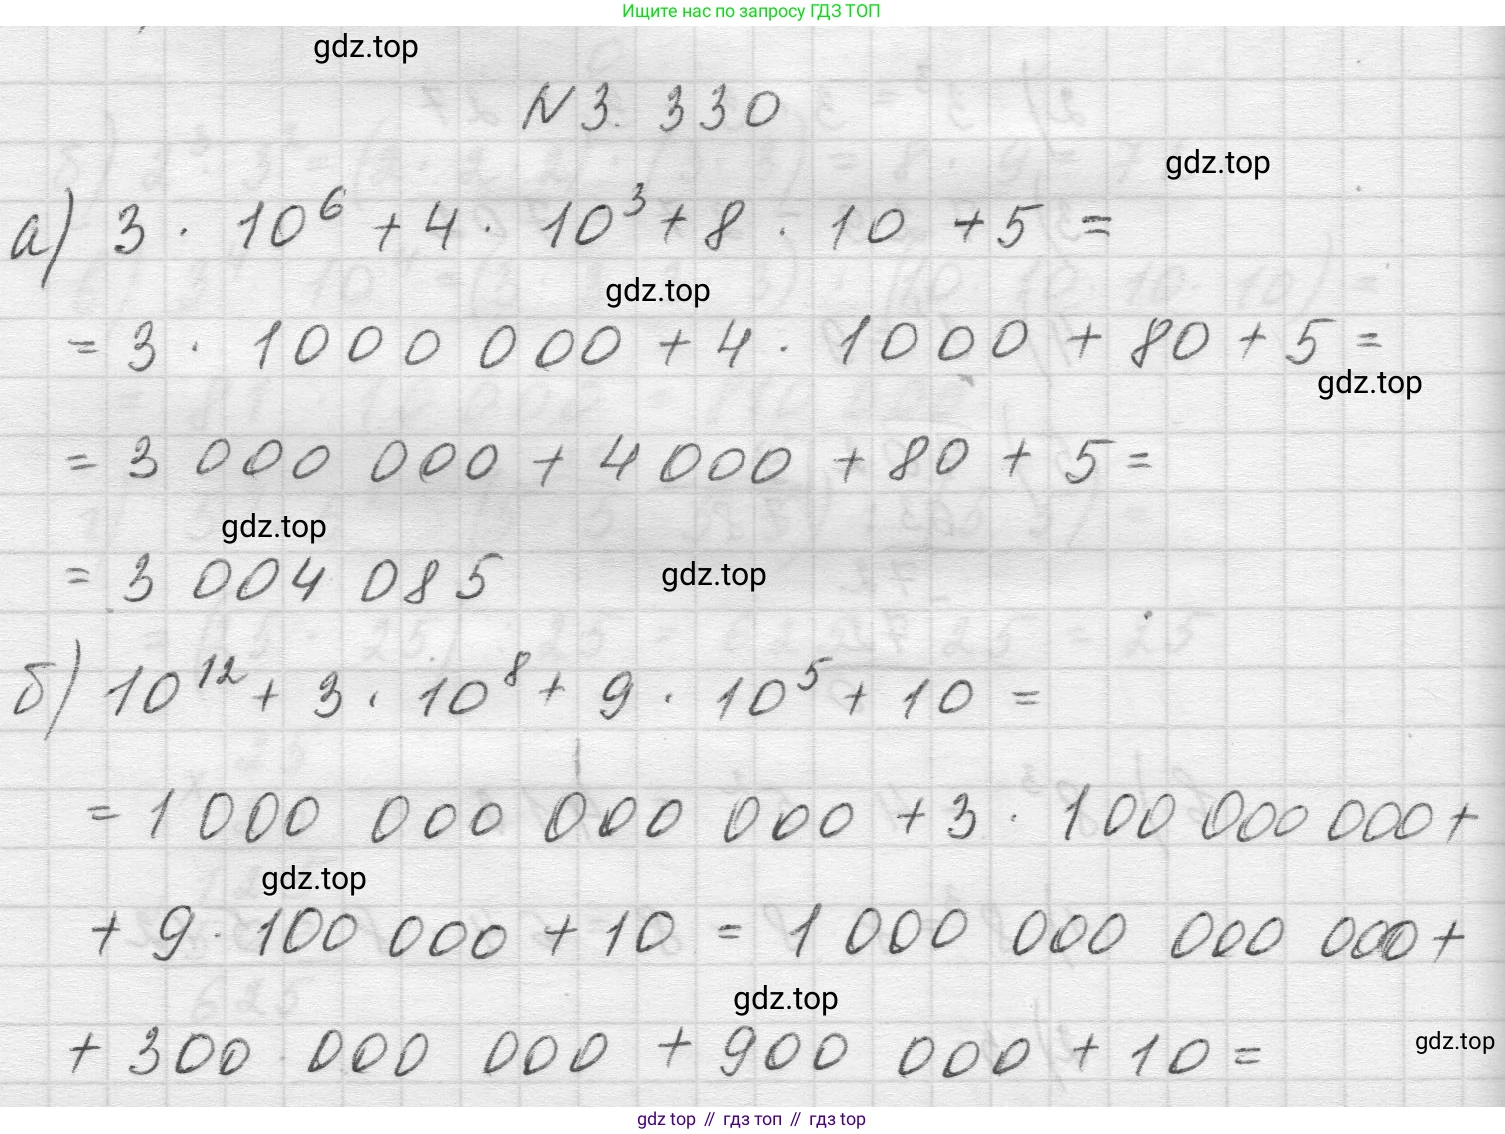 Ищите нас по запросу ГДЗ ТОП
gdz.top
N3. 330
gdz.top
а) 3 · 10⁶ + 4 · 10³ + 8 · 10 + 5 =
gdz.top
= 3 · 1000 000 + 4 · 1000 + 80 + 5 =
gdz.top
= 3 000 000 + 4000 + 80 + 5 =
gdz.top
= 3 004 085
gdz.top
б) 10¹² + 3 · 10⁸ + 9 · 10⁵ + 10 =
= 1 000 000 000 000 + 3 · 100 000 000 +
gdz.top
+ 9 · 100 000 + 10 = 1 000 000 000 000 +
gdz.top
+ 300 000 000 + 900 000 + 10 =
gdz.top
gdz top // гдз топ // гдз top